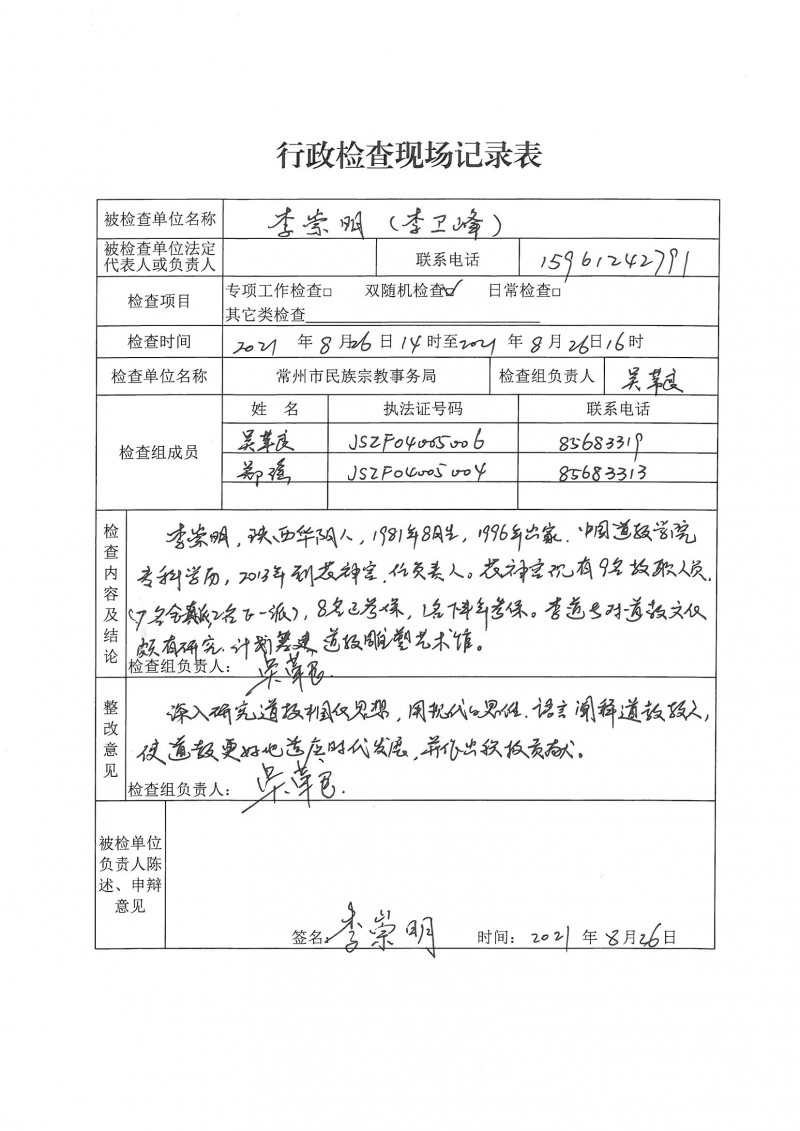 行政检查现场记录表
被检查单位名称 李崇明(李卫峰)
被检查单位法定
代表人或负责人 联系电话 15961242791
检查项目 专项工作检查□ 双随机检查☑ 日常检查□
其它类检查
检查时间 2021 年 8 月 26 日 14 时至 2021 年 8 月 26 日 16 时
检查单位名称 常州市民族宗教事务局 检查组负责人 吴
检查组成员 姓 名 执法证号码 联系电话
吴 JSZF04005006 85683319
郑瑶 JSZF04005004 85683313
检查内容及结论
李崇明,陕西华阴人,1981年8月生,1996年出家.中国道教学院
专科学历,2013年到 任负责人。 现有9名教职人员.
(7名全真派2名正一派),8名已参保,1名下半年参保。李道长对道教文化
颇有研究.计划筹建道教雕塑艺术馆。
检查组负责人: 吴
整改意见
深入研究道教 思想,用现代的思维.语言阐释道教教义,
使道教更好地适应时代发展,并作出积极贡献。
检查组负责人: 吴
被检单位
负责人陈
述、申辩
意见
签名: 李崇明 时间: 2021 年 8 月 26 日